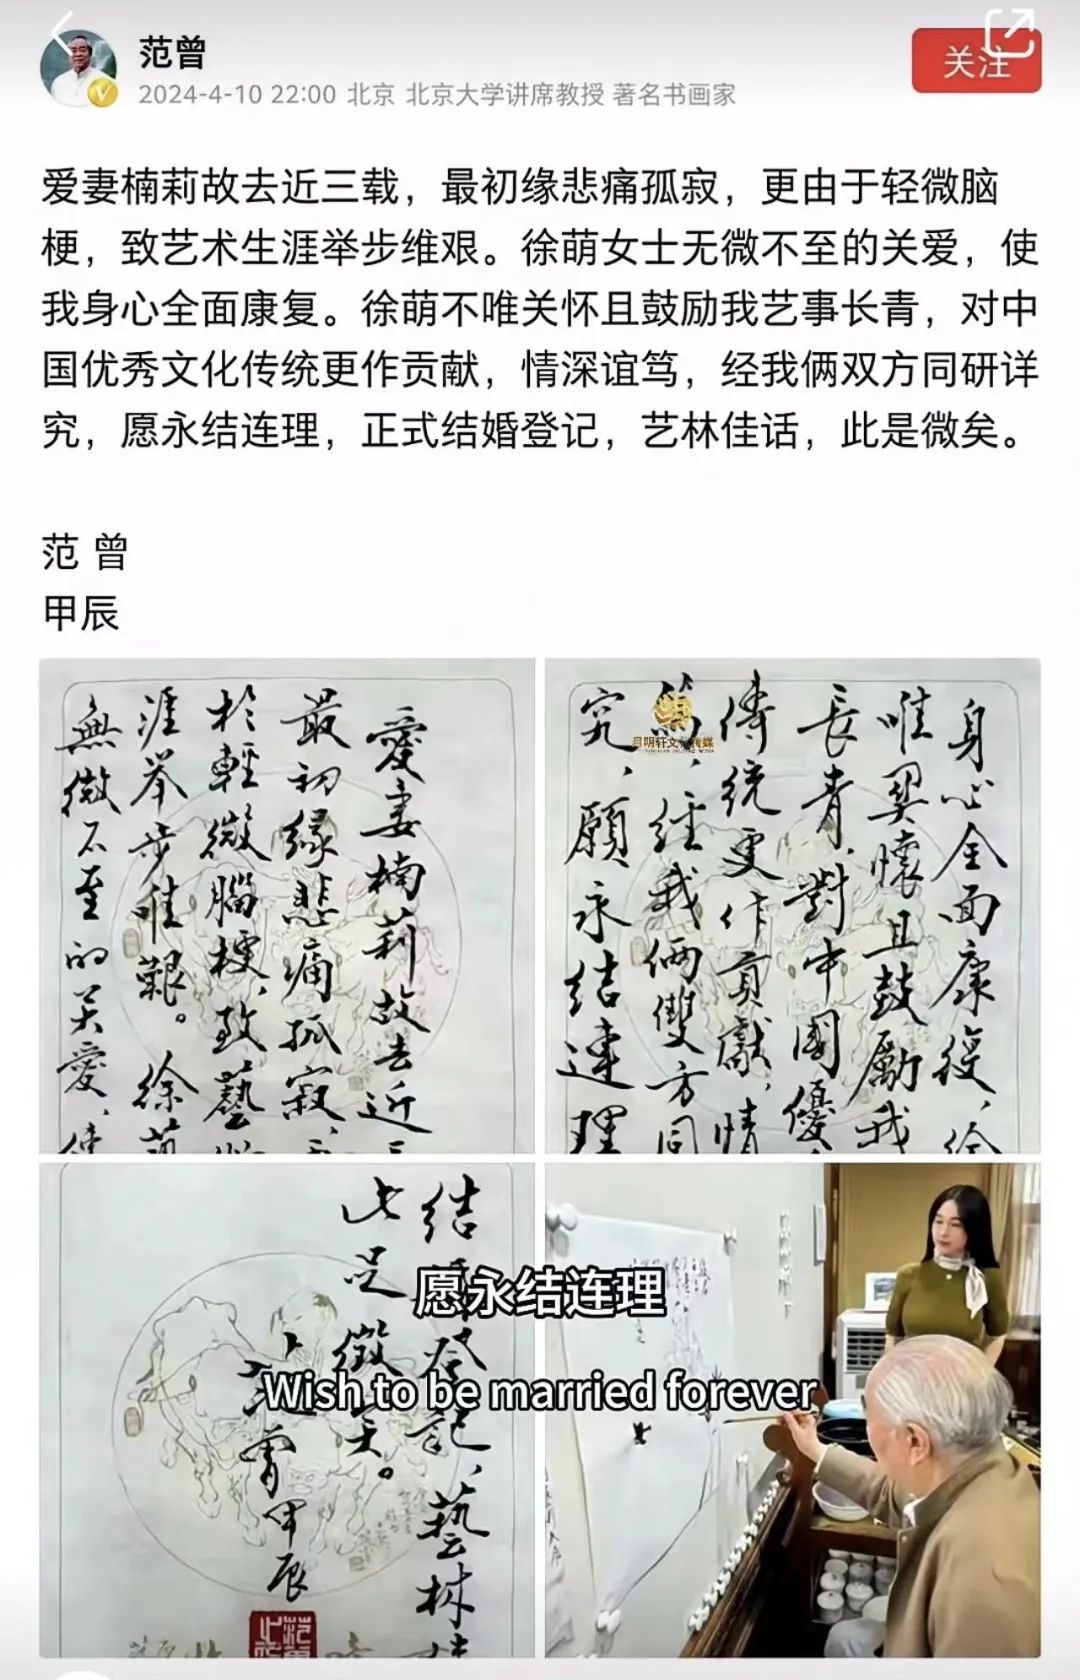 范曾
关注
2024-4-10 22:00 北京 北京大学讲席教授 著名书画家
爱妻楠莉故去近三载，最初缘悲痛孤寂，更由于轻微脑
梗，致艺术生涯举步维艰。徐萌女士无微不至的关爱，使
我身心全面康复。徐萌不唯关怀且鼓励我艺事长青，对中
国优秀文化传统更作贡献，情深谊笃，经我俩双方同研详
究，愿永结连理，正式结婚登记，艺林佳话，此是微矣。
范 曾
甲辰
愛妻楠莉故去近三
最初緣悲痛孤寂，
於輕微腦梗，致藝
涯举步惟艱。徐萌
無微不至的关愛，使
身心全面康復，徐
唯関懷且鼓勵我
長青，對中國優
傳统更作貢獻，情
篤，经我俩雙方同
究，願永结連理
结婚登記，藝林佳
此是微矣。
范曾甲辰
愿永结连理
Wish to be married forever